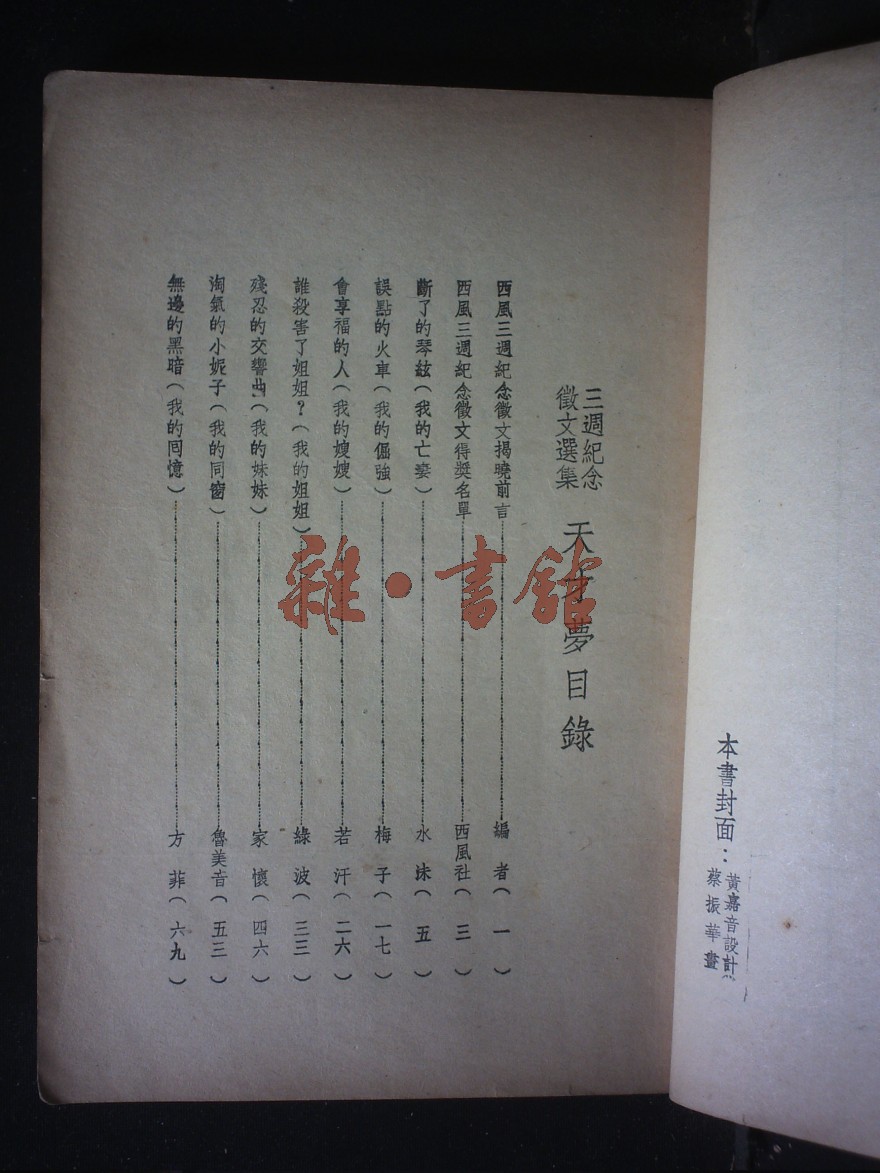 本書封面：
黃嘉音設計
蔡振華畫
三週紀念
徵文選集
天才夢目錄
西風三週紀念徵文揭曉前言………編者（一）
西風三週紀念徵文得獎名單………西風社（三）
斷了的琴絃（我的亡妻）………水沫（五）
誤點的火車（我的倔強）………梅子（一七）
會享福的人（我的嫂嫂）………若汗（二六）
誰殺害了姐姐？（我的姐姐）………綠波（三三）
殘忍的交響曲（我的妹妹）………家懷（四六）
淘氣的小妮子（我的同窗）………魯美音（五三）
無邊的黑暗（我的回憶）………方菲（六九）
雜·書館